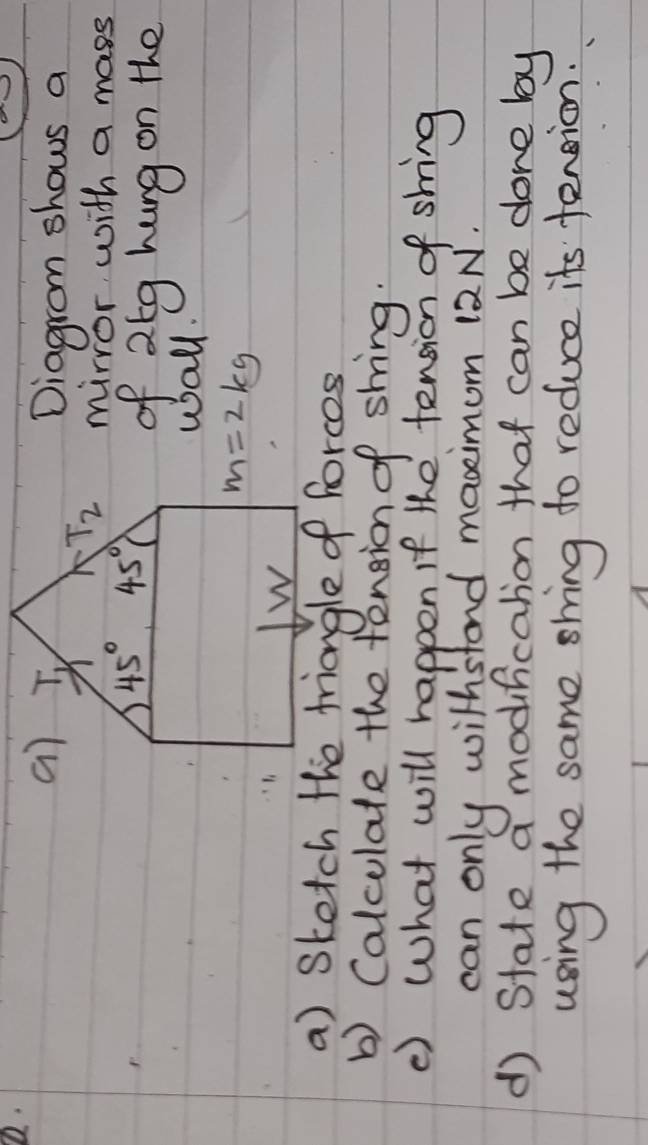 2.
a)
Diagram shows a
mirror with a mass
of 2kg hung on the
wall.
T1 T2
45° 45°
m = 2kg
W
a) Sketch the triangle of forces
b) Calculate the tension of string.
c) What will happen if the tension of string
can only withstand maximum 12N.
d) State a modification that can be done by
using the same string to reduce its tension.